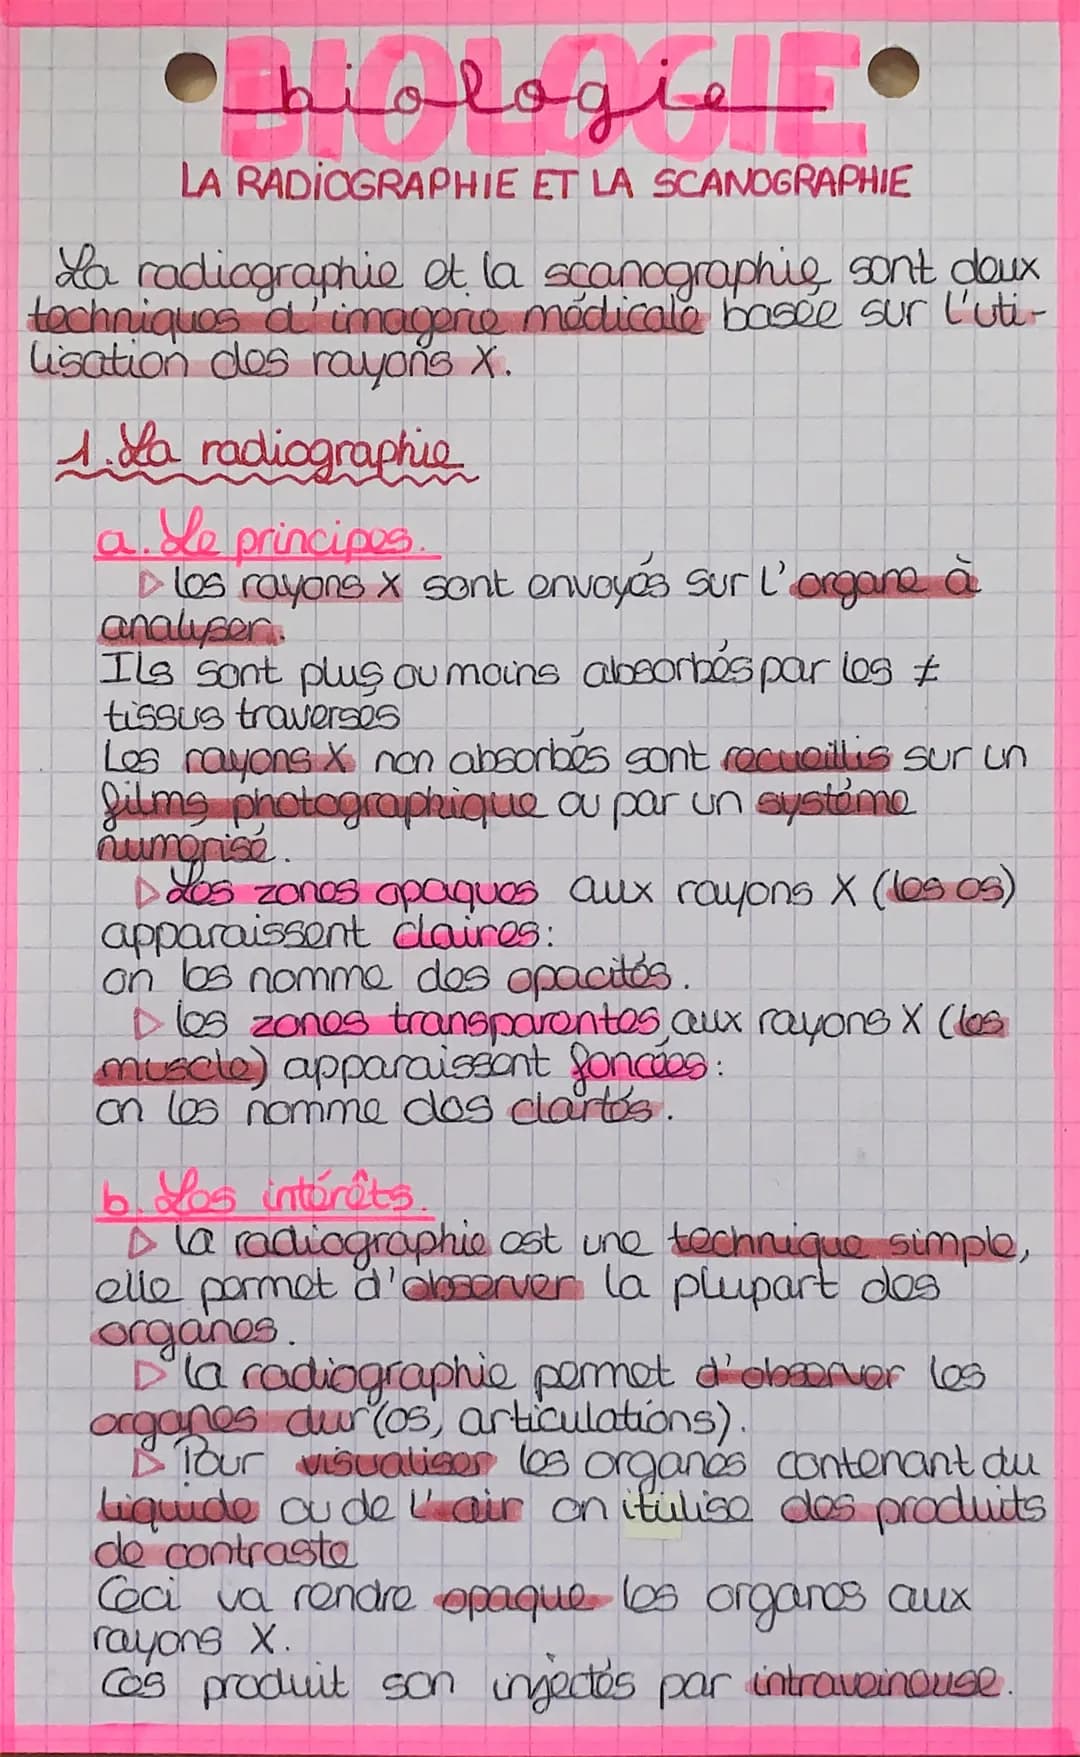 BIOLOGIE
biologie
LA RADIOGRAPHIE ET LA SCANOGRAPHIE
La radiographie et la scanographie sont deux
techniques d'imagerie médicale basée sur l'uti-
lisation des rayons X.
1. La radiographie
a. Le principes.
▷ les rayons X sont envoyés sur l'organe à
analyser.
Ils sont plus ou moins absorbés par les ≠
tissus traversés
Les rayons X non absorbés sont recueillis sur un
films photographique ou par un système
numérisé.
▷ Les zones opaques aux rayons X (les os)
apparaissent claires:
on les nomme des opacités.
▷ les zones transparentes aux rayons X (les
muscle) apparaissent foncées:
on les nomme des clartés.
b. Les intérêts.
▷ la radiographie est une technique simple,
elle permet d'observer la plupart des
organes.
▷ la radiographie permet d'observer les
organes dur (os, articulations).
▷ Pour visualiser les organes contenant du
liquide ou de l'air on itulise des produits
de contraste
Ceci va rendre opaque les organes aux
rayons X.
Ces produit son injectés par intraveineuse.